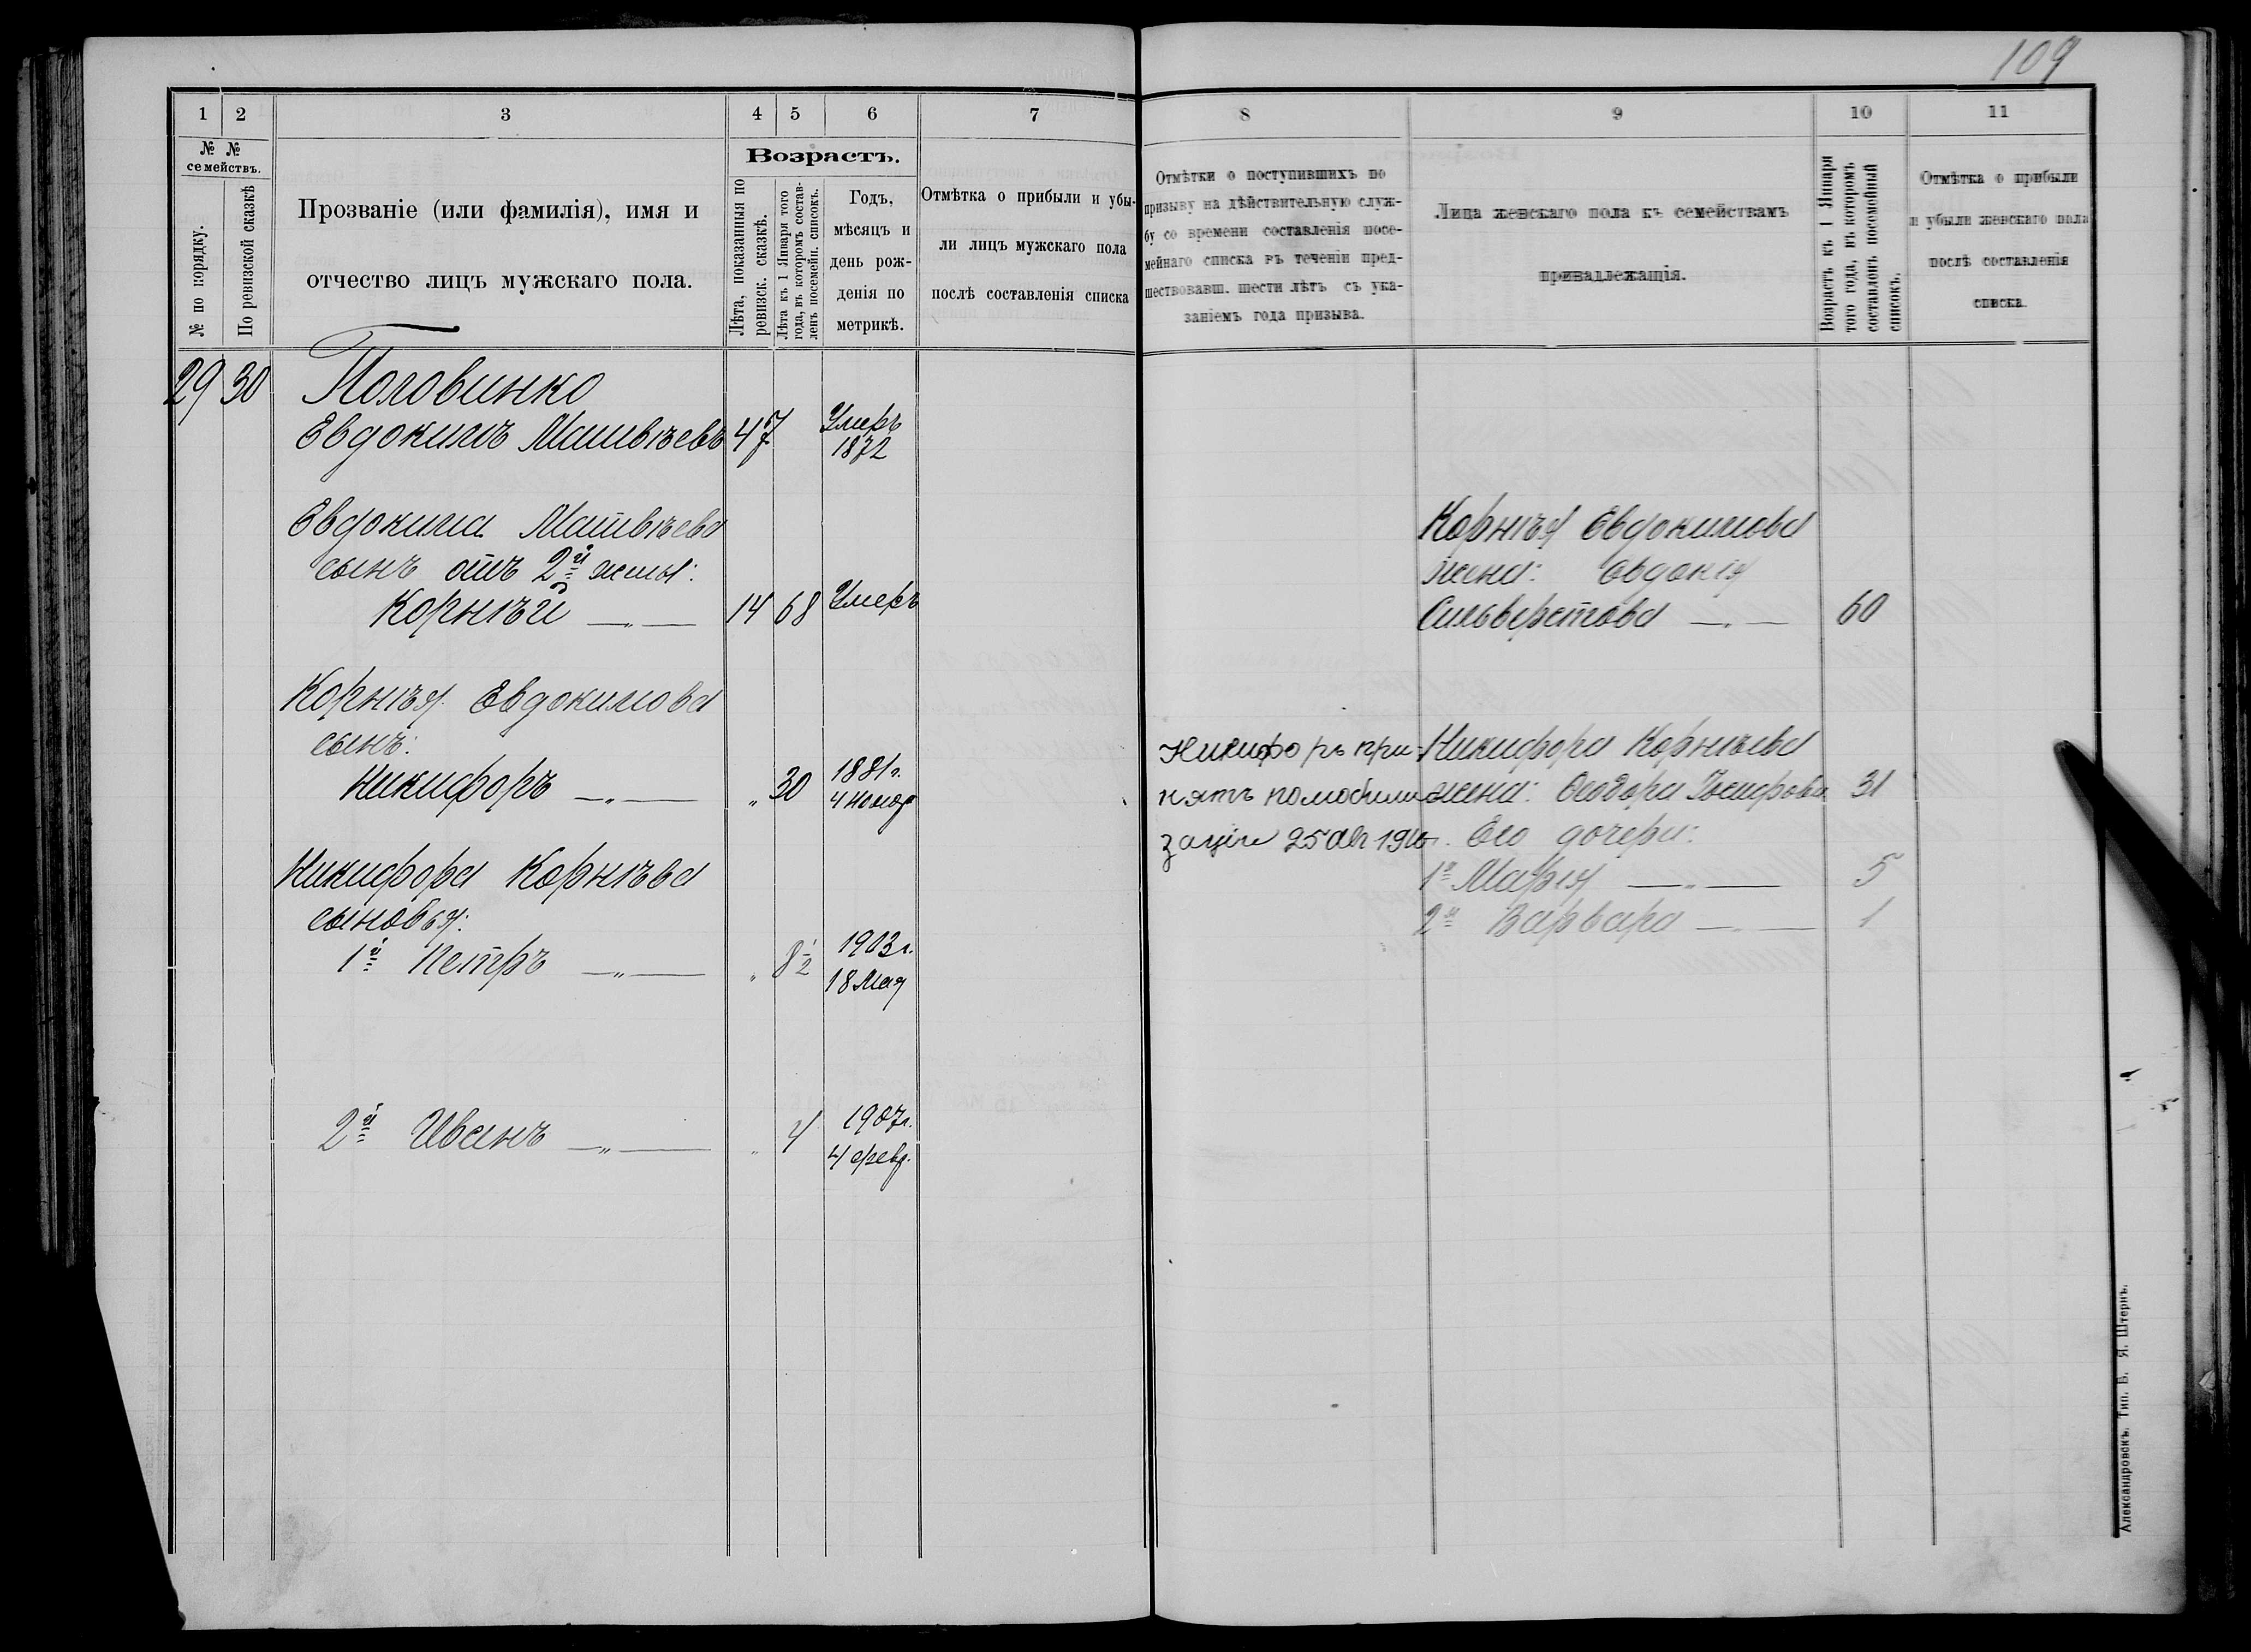 109
1
2
3
4
5
6
7
8
9
10
11
№ №
семействъ.
№ по порядку.
По ревизской сказкѣ
Прозваніе (или фамилія), имя и
отчество лицъ мужскаго пола.
Возрастъ.
Лѣта, показанныя по
ревизск. сказкѣ.
Лѣта къ 1 Января того
года, въ которомъ состав-
ленъ посемейн. списокъ.
Годъ,
мѣсяцъ и
день рож-
денія по
метрикѣ.
Отмѣтка о прибыли и убы-
ли лицъ мужскаго пола
послѣ составленія списка
Отмѣтки о поступившихъ по
призыву на дѣйствительную служ-
бу со времени составленія посе-
мейнаго списка въ теченіи пред-
шествовавш. шести лѣтъ съ ука-
заніемъ года призыва.
Лица женскаго пола къ семействамъ
принадлежащія.
Возрастъ къ 1 Января
того года, въ которомъ
составленъ посемейный
списокъ.
Отмѣтка о прибыли
и убыли женскаго пола
послѣ составленія
списка.
29 30 Половинко
Евдокимъ Матвѣевъ 47 Умеръ
1872
Евдокима Матвѣева
сынъ отъ 2й жены:
Корнѣй —„— 14 68 Умеръ
Корнѣя Евдокимова
жена: Евдокія
Сильверстова —„— 60
Корнѣя Евдокимова
сынъ:
Никифоръ —„— „ 30 1881г.
4 Нояб
Никифоръ при-
нятъ по мобили
заціи 25 ав 1916г.
Никифора Корнѣева
жена: Ѳеодора Іосифова 31
Его дочери:
1я Марія —„— 5
2я Варвара —„— 1
Никифора Корнѣева
сыновья:
1й Петръ —„— „ 8½ 1903г.
18 Мая
2й Иванъ —„— „ 4 1907г.
4 февр.
Александровскъ. Тип. Б. Я. Штернъ.